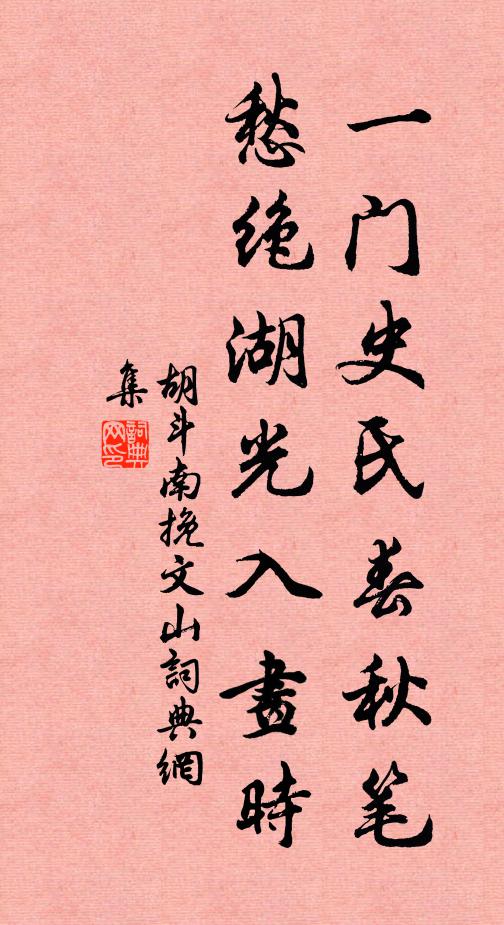 一门史氏春秋笔
愁绝湖光入畫時
胡斗南挽文山詞典網
集
詞典
网印